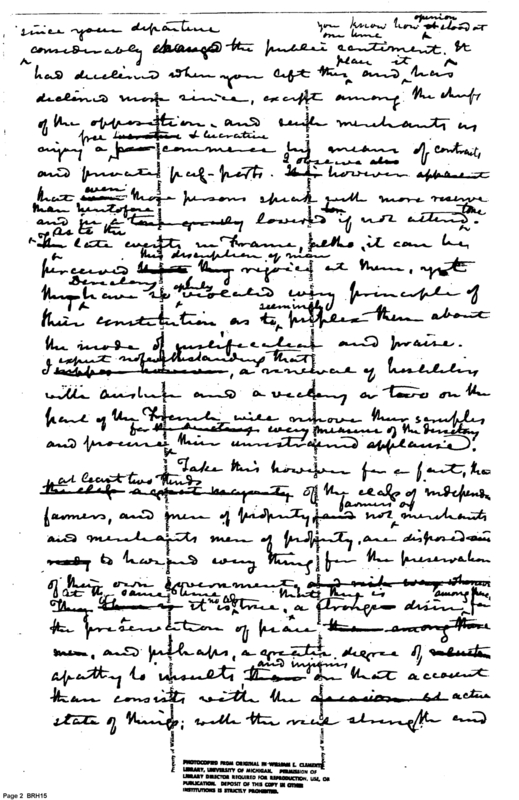 since your departure you know how opinion stood at
one time
considerably changed the public sentiment. It
had declined when you left this place and it has
declined more since, except among the chiefs
of the opposition, and such merchants as
free lucrative & lucrative
enjoy a commerce by means of contracts
and private pas-ports. I observe also however apparent
that even those persons speak with more reserve
than heretofore
and in a tone greatly lowered if not altered.
As to the
late events in France, altho, it can be
this description of men
perceived they rejoice at them, yet
the Directory have so openly violated every principle of
seemingly
their constitution, as to perplex them about
the mode of justification and praise.
I expect notwithstanding that
I suppose however, a renewal of hostilities
with Austria and a victory or two on the
part of the French will remove their scruples
for every measure of the directory
and procure their unrestrained applause.
Take this however for a fact, that
at least two thirds
of the class of independent
farmers, and men of property, and not merchants
farmers or
and merchants men of property, are disposed
ready to hazard every thing for the preservation
of their own government,
At the same time I think there is among them,
it is true, a stronger desire for
the preservation of peace than among those
men, and perhaps, a greater degree of
apathy to insults and injuries on that account
than consists with the actual
state of things; with the real strength and
PHOTOCOPIED FROM ORIGINAL IN WILLIAM L. CLEMENTS
LIBRARY, UNIVERSITY OF MICHIGAN. PERMISSION OF
LIBRARY DIRECTOR REQUIRED FOR REPRODUCTION, USE, OR
PUBLICATION. DEPOSIT OF THIS COPY IN OTHER
INSTITUTIONS IS STRICTLY PROHIBITED.
Page 2 BRH15